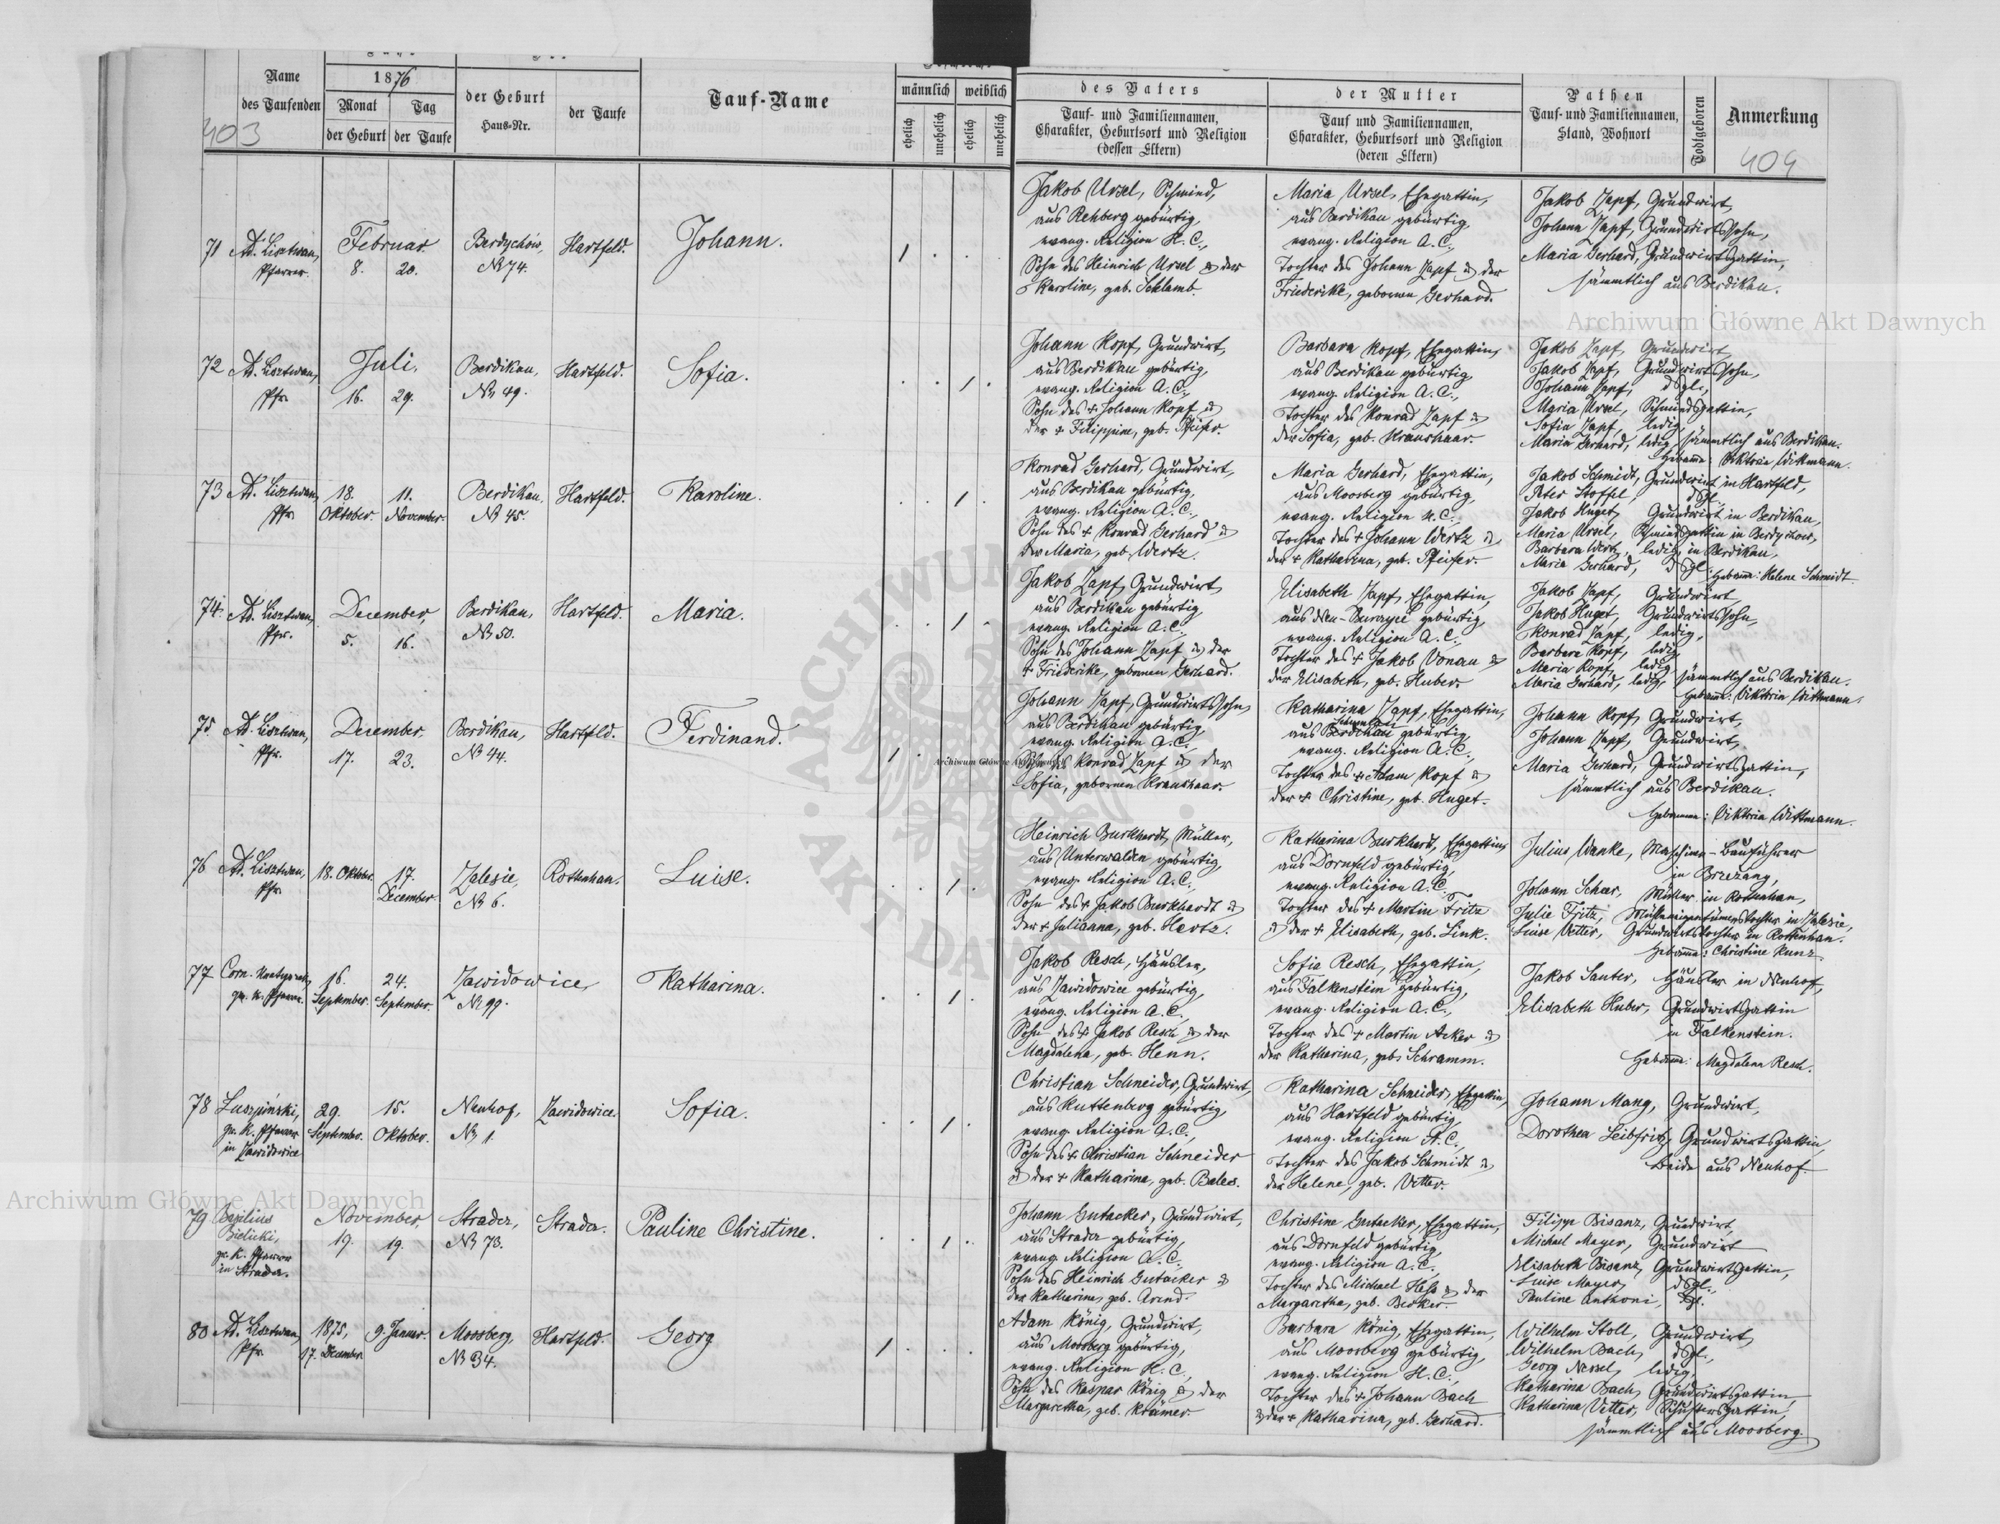 Name
des Taufenden
1876
Monat
Tag
der Geburt
der Taufe
der Geburt
Haus-Nr.
der Taufe
Tauf-Name
männlich
weiblich
ehelich
unehelich
ehelich
unehelich
des Vaters
Tauf- und Familiennamen,
Charakter, Geburtsort und Religion
(dessen Eltern)
der Mutter
Tauf und Familiennamen,
Charakter, Geburtsort und Religion
(deren Eltern)
Pathen
Tauf- und Familiennamen,
Stand, Wohnort
Todtgeboren
Anmerkung
403
404
71 Ad. Lisztwan,
Pfarrer.
Februar
8. 20.
Berdychów,
№ 74.
Hartfeld.
Johann.
1 . . .
Jakob Ursel, Schmied,
aus Rehberg gebürtig,
evang. Religion H. C.,
Sohn des Heinrich Ursel u der
Karoline, geb. Schlamb.
Maria Ursel, Ehegattin,
aus Berdikau gebürtig,
evang. Religion A. C.,
Tochter des Johann Zapf u der
Friederike, gebornen Gerhard.
Jakob Zapf, Grundwirt,
Johann Zapf, Grundwirtssohn,
Maria Gerhard, Grundwirtsgattin,
sämmtlich aus Berdikau.
72 Ad. Lisztwan,
Pfr.
Juli,
16. 29.
Berdikau,
№ 49.
Hartfeld.
Sofia.
. . 1 .
Johann Kopf, Grundwirt,
aus Berdikau gebürtig,
evang. Religion A. C.,
Sohn des + Johann Kopf u
der + Filippine, geb. Pfeifer.
Barbara Kopf, Ehegattin,
aus Berdikau gebürtig,
evang. Religion A. C.,
Tochter des Konrad Zapf u
der Sofia, geb. Kraushaar.
Jakob Zapf, Grundwirt,
Jakob Zapf, Grundwirtssohn,
Johann Zapf, dsgl.,
Maria Ursel, Schmiedsgattin,
Sofia Zapf, ledig,
Maria Gerhard, ledig, sämmtlich aus Berdikau.
Hebamme: Viktoria Wittmann.
73 Ad. Lisztwan,
Pfr.
18. 11.
Oktober. November.
Berdikau.
№ 45.
Hartfeld.
Karoline.
. . 1 .
Konrad Gerhard, Grundwirt,
aus Berdikau gebürtig,
evang. Religion A. C.,
Sohn des + Konrad Gerhard u
der Maria, geb. Wertz.
Maria Gerhard, Ehegattin,
aus Moosberg gebürtig,
evang. Religion H. C.,
Tochter des + Johann Wertz u
der + Katharina, geb. Pfeifer.
Jakob Schmidt, Grundwirt in Hartfeld,
Peter Stoffel, dsgl.
Jakob Huget, Grundwirt in Berdikau,
Maria Ursel, Schmiedsgattin in Berdychów,
Barbara Wertz, ledig, in Berdikau,
Maria Gerhard, dsgl.
Hebamme: Helene Schmidt.
74. Ad. Lisztwan,
Pfr.
December,
5. 16.
Berdikau,
№ 50.
Hartfeld.
Maria.
. . 1 .
Jakob Zapf, Grundwirt,
aus Berdikau gebürtig,
evang. Religion A. C.,
Sohn des Johann Zapf u der
+ Friederike, gebornen Gerhard.
Elisabeth Zapf, Ehegattin,
gebürtig,
evang. Religion A. C.,
Tochter des + Jakob Vonau u
der Elisabeth, geb. Huber.
Jakob Zapf, Grundwirt,
Jakob Huget, Grundwirtssohn,
Konrad Zapf, ledig,
Barbara Kopf, ledig,
Maria Kopf, ledig,
Maria Gerhard, ledig, sämmtlich aus Berdikau.
Hebamme: Viktoria Wittmann.
75 Ad. Lisztwan,
Pfr.
December
17. 23.
Berdikau,
№ 44.
Hartfeld.
Ferdinand.
1 .
Johann Zapf, Grundwirtssohn,
aus Berdikau gebürtig,
evang. Religion A. C.,
Sohn des Konrad Zapf u der
Sofia, gebornen Kraushaar.
Katharina Zapf, Ehegattin,
aus Berdikau gebürtig,
evang. Religion A. C.,
Tochter des + Adam Kopf u
der + Christine, geb. Huget.
Johann Kopf, Grundwirt,
Johann Zapf, Grundwirt,
Maria Gerhard, Grundwirtsgattin,
sämmtlich aus Berdikau.
Hebamme: Viktoria Wittmann.
76 Ad. Lisztwan,
Pfr.
18. Oktober.
17.
December.
Zalesie,
№ 6.
Rottenhan.
Luise.
. . 1 .
Heinrich Burkhardt, Müller,
aus Unterwalden gebürtig,
evang. Religion A. C.,
Sohn des + Jakob Burkhardt u
der + Julianna, geb. Hertz.
Katharina Burkhardt, Ehegattin,
aus Dornfeld gebürtig,
evang. Religion A. C.,
Tochter des + Martin Fritz
u der + Elisabeth, geb. Link.
Julius Wanke, Maschinen-Bauführer
in Brzezany,
Johann Scherr, Müller in Rottenhan,
Julie Fritz, Mühleneigentümerstochter in Zalesie,
Luise Vetter, Grundwirtstochter in Rottenhan.
Hebamme: Christine Kunz.
77 Corn.
gr. k. Pfarrer.
16. 24.
September. September.
Zawidowice,
№ 99.
Katharina.
. . 1 .
Jakob Resch, Häusler,
aus Zawidowice gebürtig,
evang. Religion A. C.,
Sohn des + Jakob Resch u der
Magdalena, geb. Henn.
Sofia Resch, Ehegattin,
aus Falkenstein gebürtig,
evang. Religion A. C.,
Tochter des + Martin Acker u
der Katharina, geb. Schramm.
Jakob Sauter, Häusler in Neuhof,
Elisabeth Huber, Grundwirtsgattin
in Falkenstein.
Hebamme: Magdalena Resch.
78 Luszpiński,
gr. k. Pfarrer
in Zawidowice
29. 15.
September. Oktober.
Neuhof,
№ 1.
Zawidowice.
Sofia.
. . 1 .
Christian Schneider, Grundwirt,
aus Kuttenberg gebürtig,
evang. Religion A. C.,
Sohn des + Christian Schneider
u der + Katharina, geb. Bales.
Katharina Schneider, Ehegattin,
aus Hartfeld gebürtig,
evang. Religion A. C.,
Tochter des Jakob Schmidt u
der Helene, geb. Vetter.
Johann Mang, Grundwirt,
Dorothea Leibfritz, Grundwirtsgattin,
beide aus Neuhof.
79 Basilius
Bielicki,
gr. k. Pfarrer
in Stradcz.
November,
19. 19.
Stradcz,
№ 73.
Stradcz.
Pauline Christine.
. . 1 .
Johann Gutacker, Grundwirt,
aus Stradcz gebürtig,
evang. Religion A. C.,
Sohn des Heinrich Gutacker u
der Katharina, geb. Arend.
Christine Gutacker, Ehegattin,
aus Dornfeld gebürtig,
evang. Religion A. C.,
Tochter des Michael Hess u der
Margaretha, geb. Becker.
Filipp Bisanz, Grundwirt,
Michael Mayer, Grundwirt
Elisabeth Bisanz, Grundwirtsgattin,
Luise Mayer, dsgl.,
Pauline Anthoni, dsgl.
80 Ad. Lisztwan,
Pfr.
1875,
17. December.
9. Januar.
Moosberg,
№ 34.
Hartfeld.
Georg
1 . . .
Adam König, Grundwirt,
aus Moosberg gebürtig,
evang. Religion H. C.,
Sohn des Kaspar König u der
Margaretha, geb. Krämer.
Barbara König, Ehegattin,
aus Moosberg gebürtig,
evang. Religion H. C.,
Tochter des + Johann Bach
u der + Katharina, geb. Gerhard.
Wilhelm Stoll, Grundwirt,
Wilhelm Bach, dsgl.,
Georg Nessel, ledig,
Katharina Bach, Grundwirtsgattin,
Katharina Vetter, Schustersgattin,
sämmtlich aus Moosberg.
Archiwum Główne Akt Dawnych
Archiwum Główne Akt Dawnych
Archiwum Główne Akt Dawnych